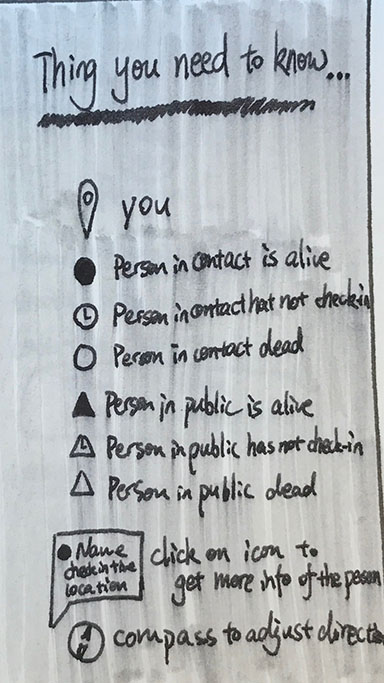 Thing you need to know...
you
Person in contact is alive
Person in contact hat not check-in
Person in contact dead
Person in public is alive
Person in public has not check-in
Person in public dead
Name
check in the
location
click on icon to
get more info of the person
compass to adjust directi